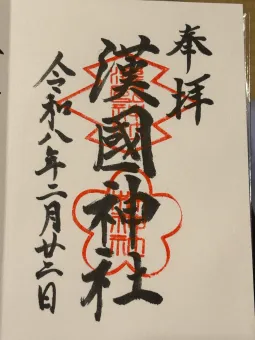 奉拝
漢國神社
令和八年二月廿二日